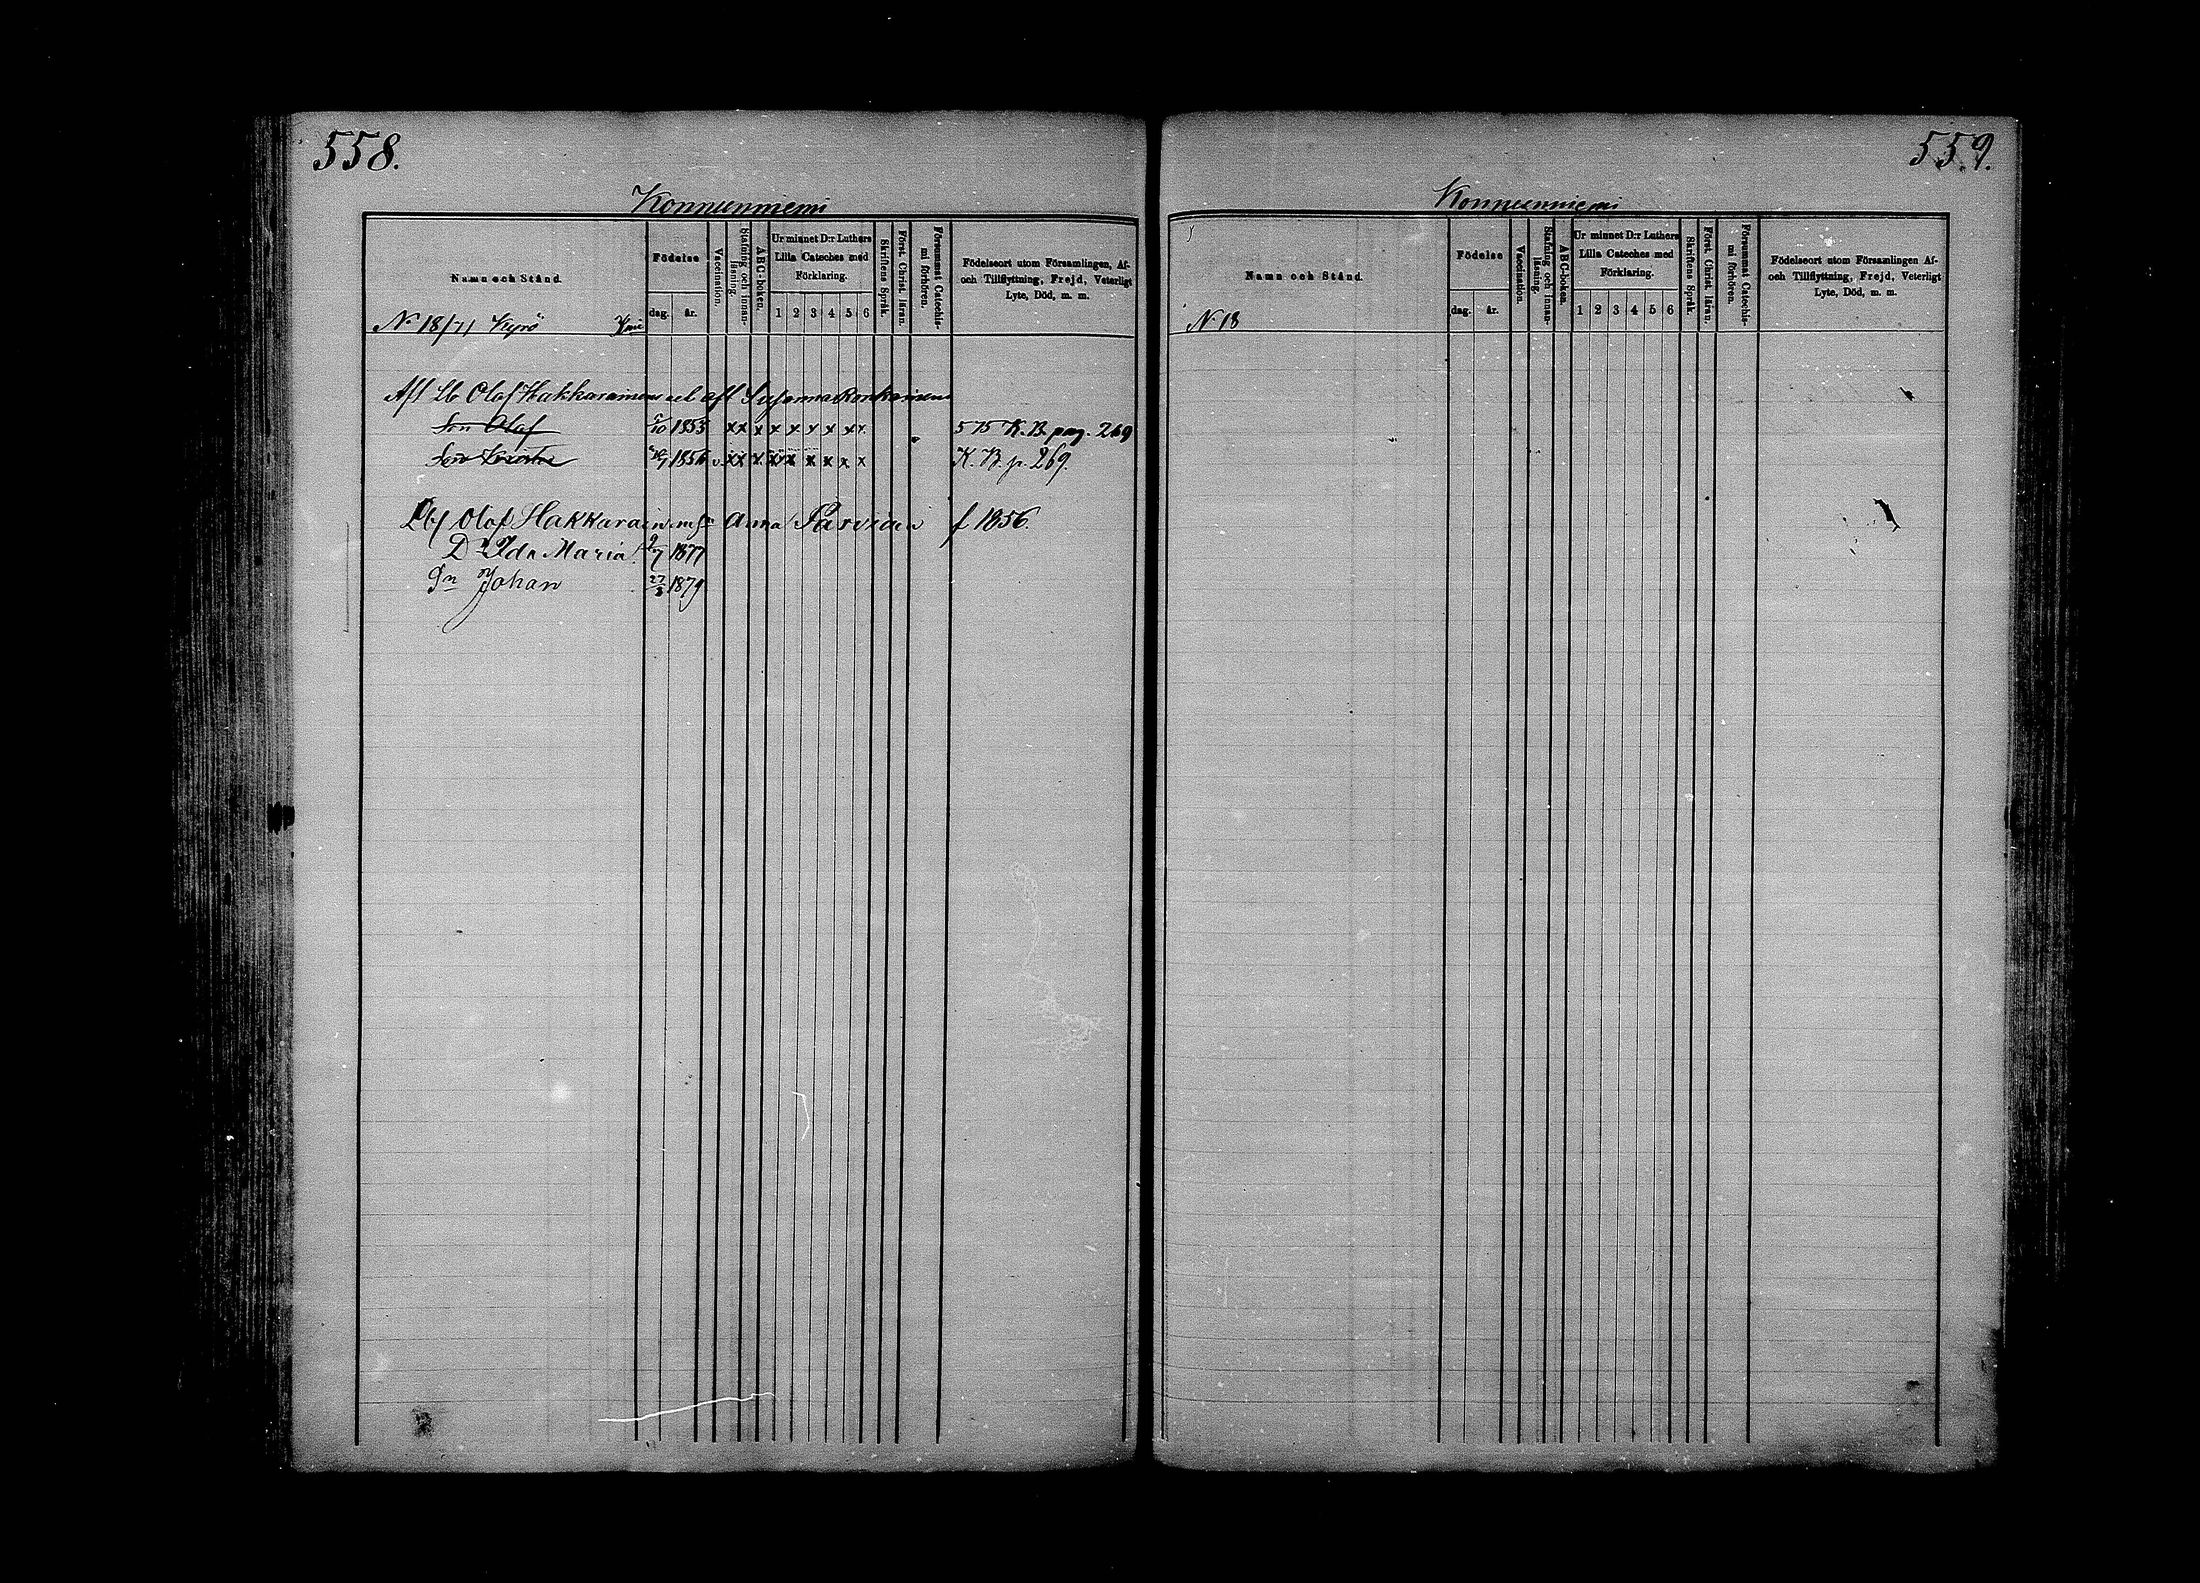 558.
Konnunniemi
Namn och Stånd.
Födelse
dag.
år.
Vaccination.
Stafning och innan-
läsning.
ABC-boken.
Ur minnet D:r Luthers
Lilla Cateches med
Förklaring.
1 2 3 4 5 6
Skriftens Språk.
Först. Christ. läran.
Försummat Catechis-
mi förhören.
Födelseort utom Församlingen, Af-
och Tillflyttning, Frejd, Veterligt
Lyte, Död, m. m.
No 18/7/ Kyrö
Afl Lb Olaf Hakkarainens och afl Susanna Ronkainens
Son Olaf /10 1855 x x x x x x x x x 575 K.B. pag. 269
Son 1856 v x x x x x x x x x K.B. p. 269.
Lbf Olaf Hakkarain m h Anna Parviain f 1856.
Dr Ida Maria 9/7 1877
Sn Johan 27/3 1879
559.
Konnunniemi
Namn och Stånd.
Födelse
dag.
år.
Vaccination.
Stafning och innan-
läsning.
ABC-boken.
Ur minnet D:r Luthers
Lilla Cateches med
Förklaring.
1 2 3 4 5 6
Skriftens Språk.
Först. Christ. läran.
Försummat Catechis-
mi förhören.
Födelseort utom Församlingen Af-
och Tillflyttning, Frejd, Veterligt
Lyte, Död, m. m.
No 18